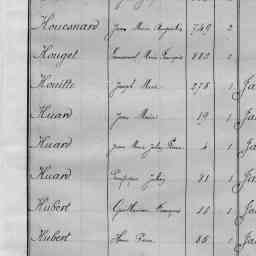 Houesnard Jean Marie Auguste 749 2
Houget Emmanuel Marie François 880 2
Houitte Joseph Marie 278 1
Huard Jean Marie 19 1
Huard Jean Marie Julien Pierre 4 1
Huard Julien 91 1
Hubert Guillaume François 11 1
Hubert Pierre 85 1